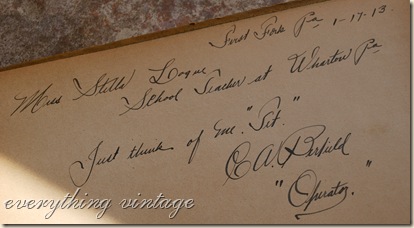 First Fork Pa
1-17-13.
Miss Stella Logue
School Teacher at Wharton Pa
Just think of me. "Sit."
E A.
"Operator."
everything vintage